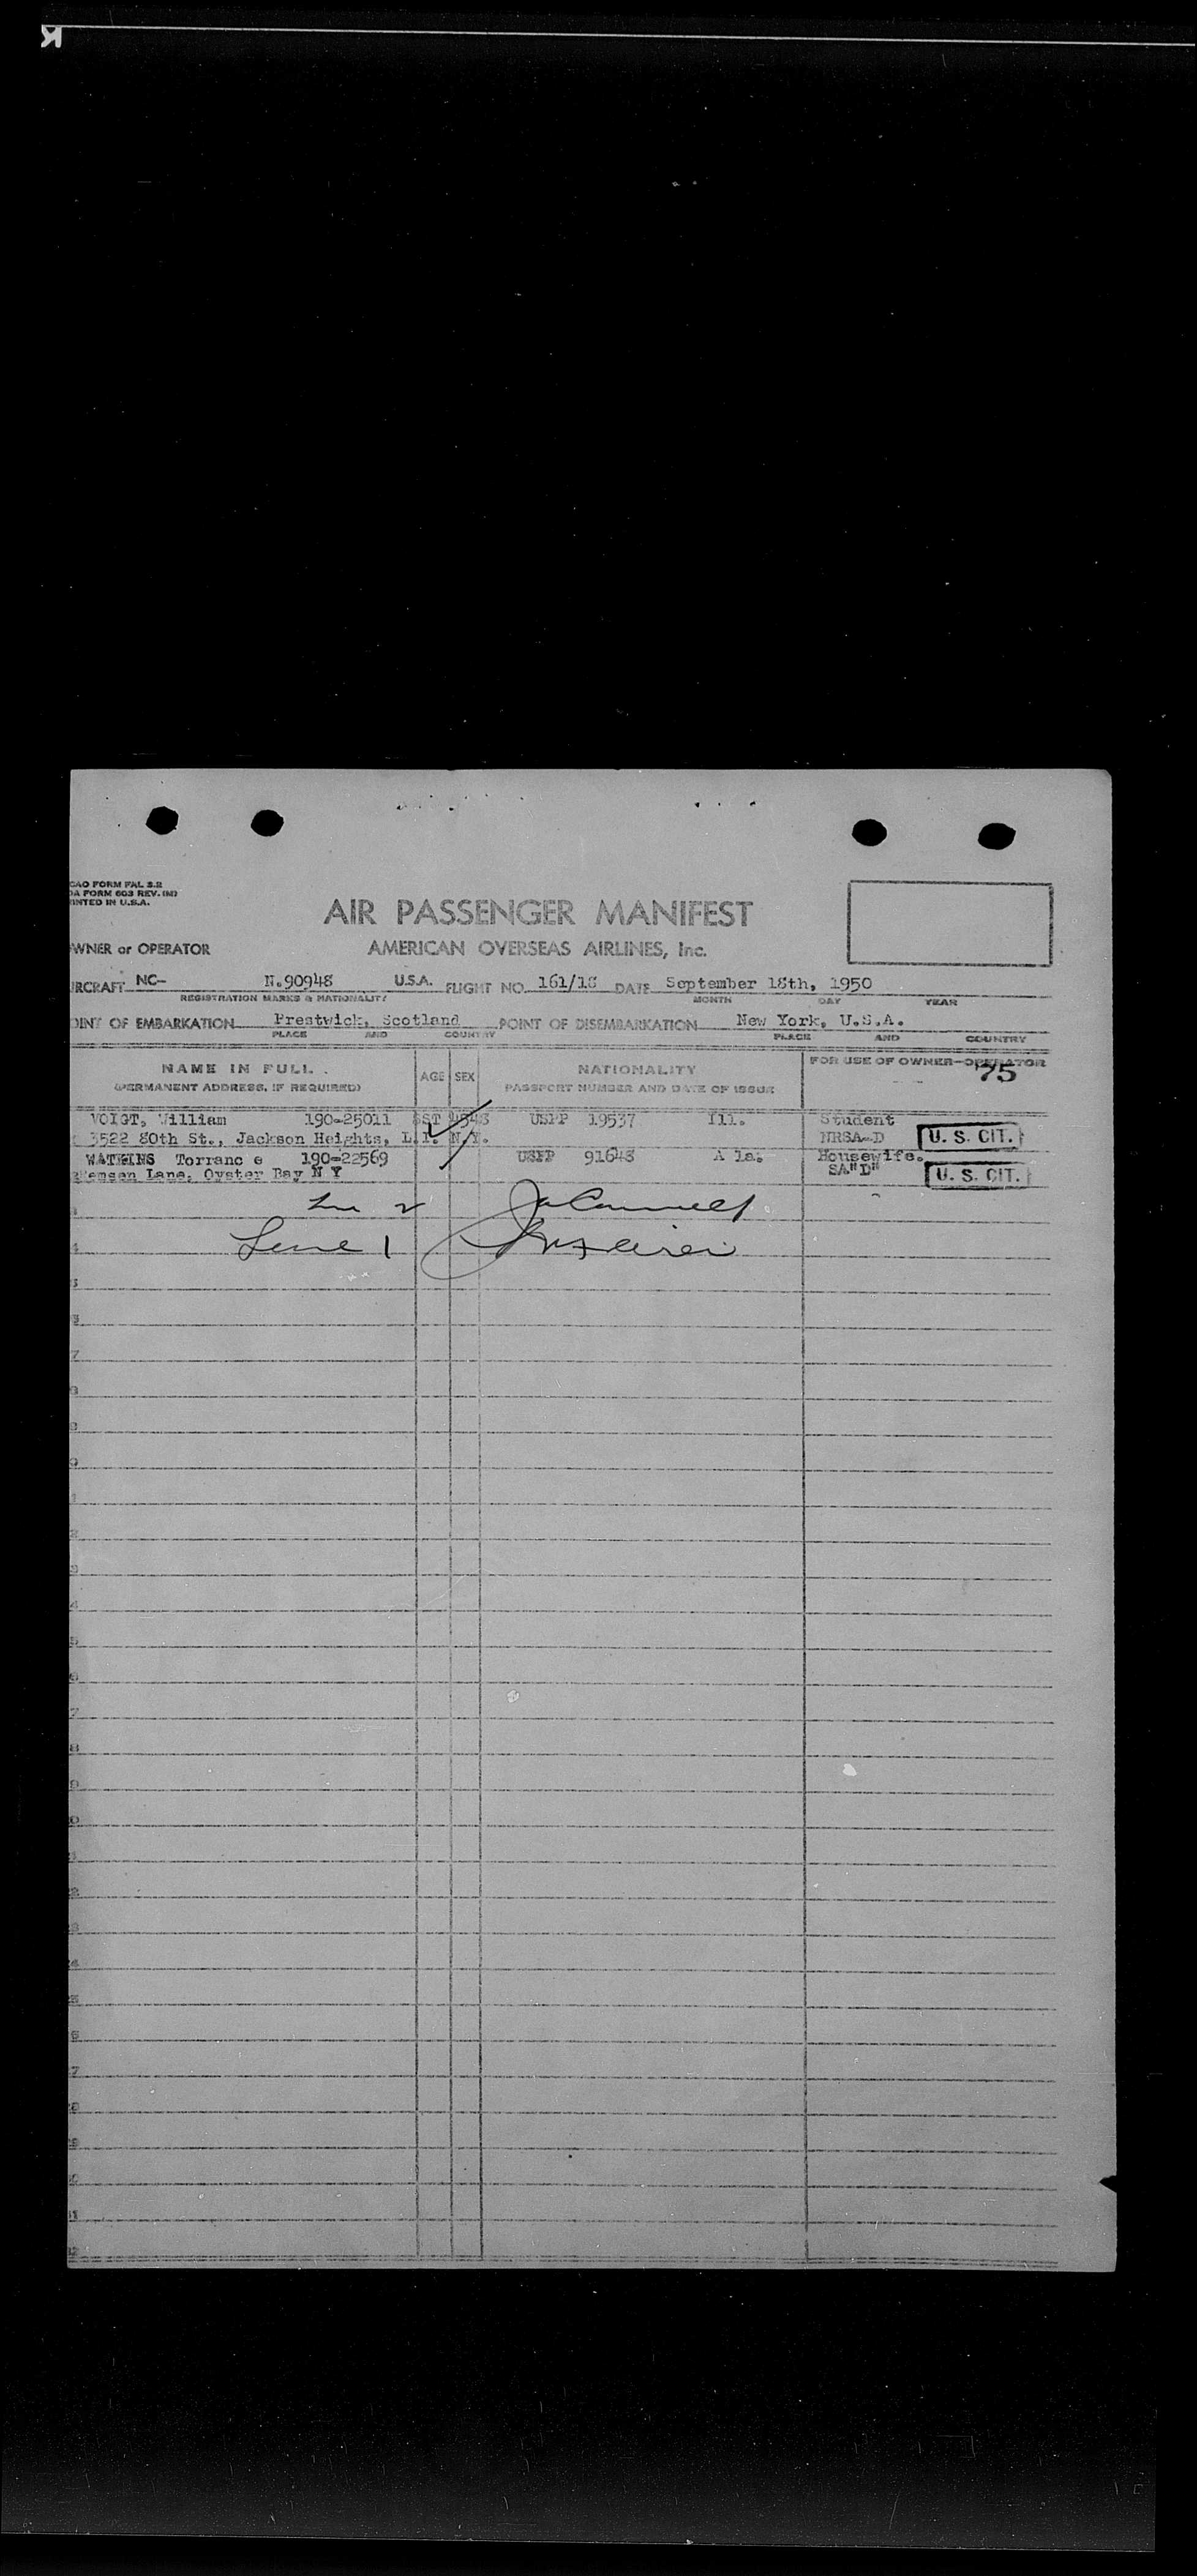 CAO FORM FAL S.2
OA FORM 603 REV. (M)
INTED IN U.S.A.
AIR PASSENGER MANIFEST
WNER or OPERATOR AMERICAN OVERSEAS AIRLINES, Inc.
IRCRAFT NC- N.90948 U.S.A. FLIGHT NO. 161/18 DATE September 18th, 1950
REGISTRATION MARKS & NATIONALITY MONTH DAY YEAR
OINT OF EMBARKATION Prestwick, Scotland POINT OF DISEMBARKATION New York, U.S.A.
PLACE AND COUNTRY PLACE AND COUNTRY
NAME IN FULL AGE SEX NATIONALITY FOR USE OF OWNER-OPERATOR
(PERMANENT ADDRESS, IF REQUIRED) PASSPORT NUMBER AND DATE OF ISSUE 75
VOIGT, William 190-25011 USPP 19537 Ill. Student
3522 80th St., Jackson Heights, L.I. N.Y. NRSA-D U. S. CIT.
WATKINS Torranc e 190-22569 USPP 91648 A la. Housewife.
Lane, Oyster Bay N Y SA"D" U. S. CIT.
2
Line 1